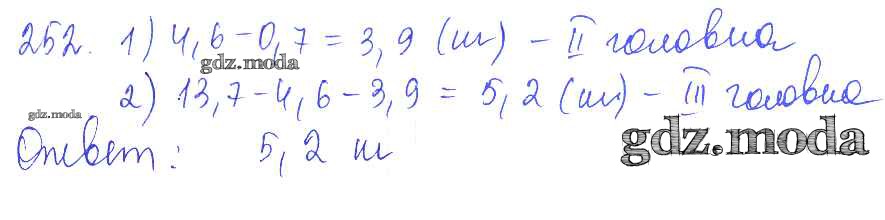 252. 1) 4,6-0,7=3,9 (ш) - II головка
gdz.moda
2) 13,7-4,6-3,9 = 5,2 (ш) - III головка
gdz.moda
Ответ: 5,2 ш
gdz.moda